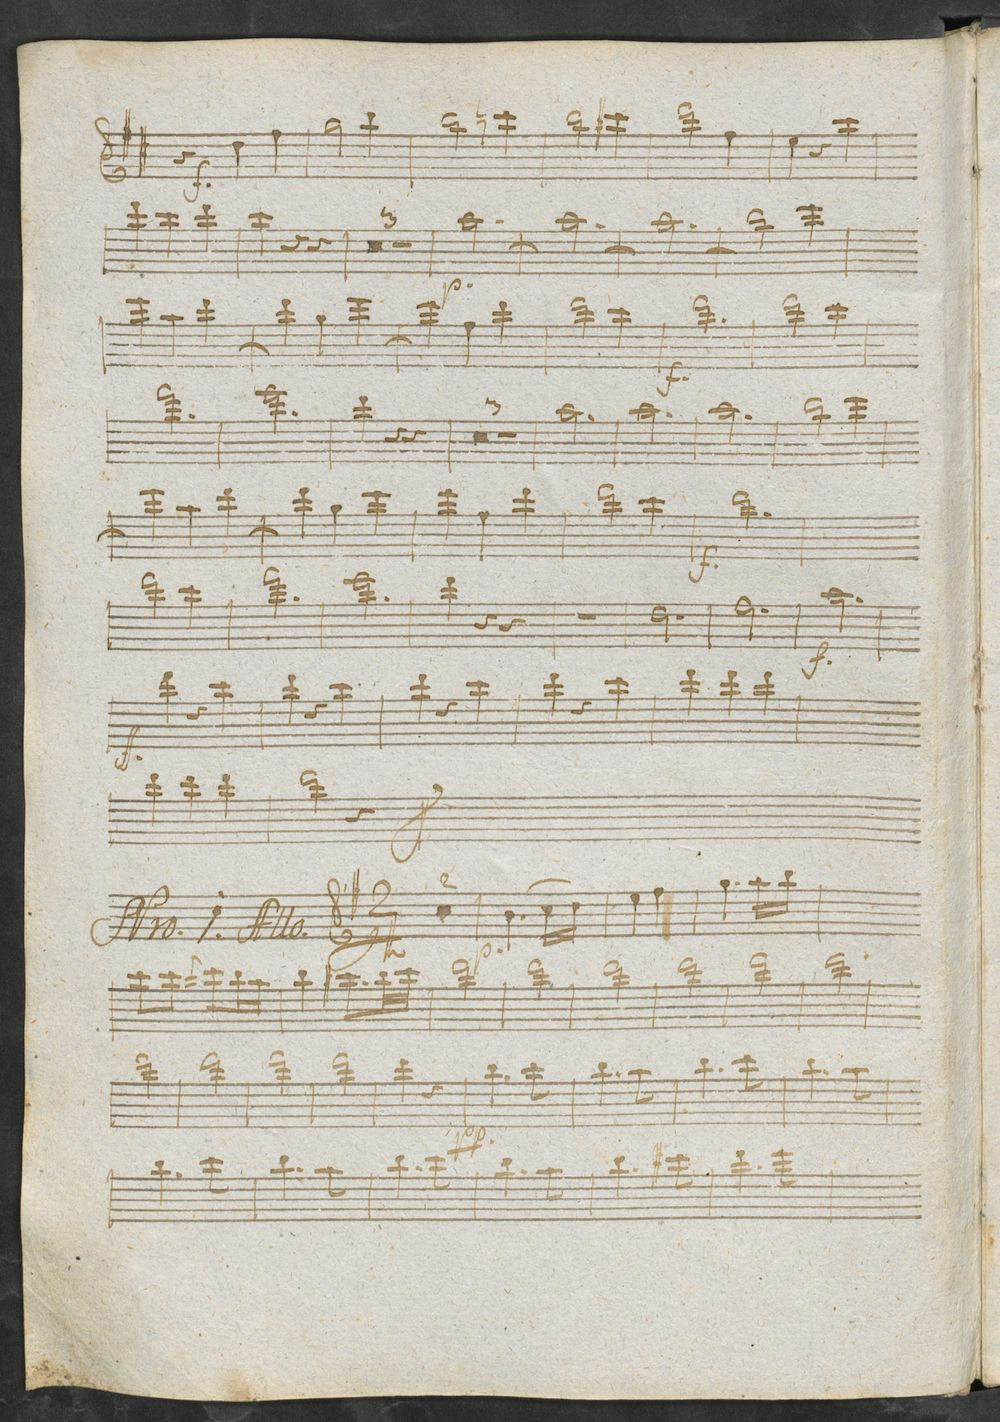 f.
3
p.
f.
3
f.
f.
ff.
Nro. 1. Allo. 2/4 2
p.
pp.